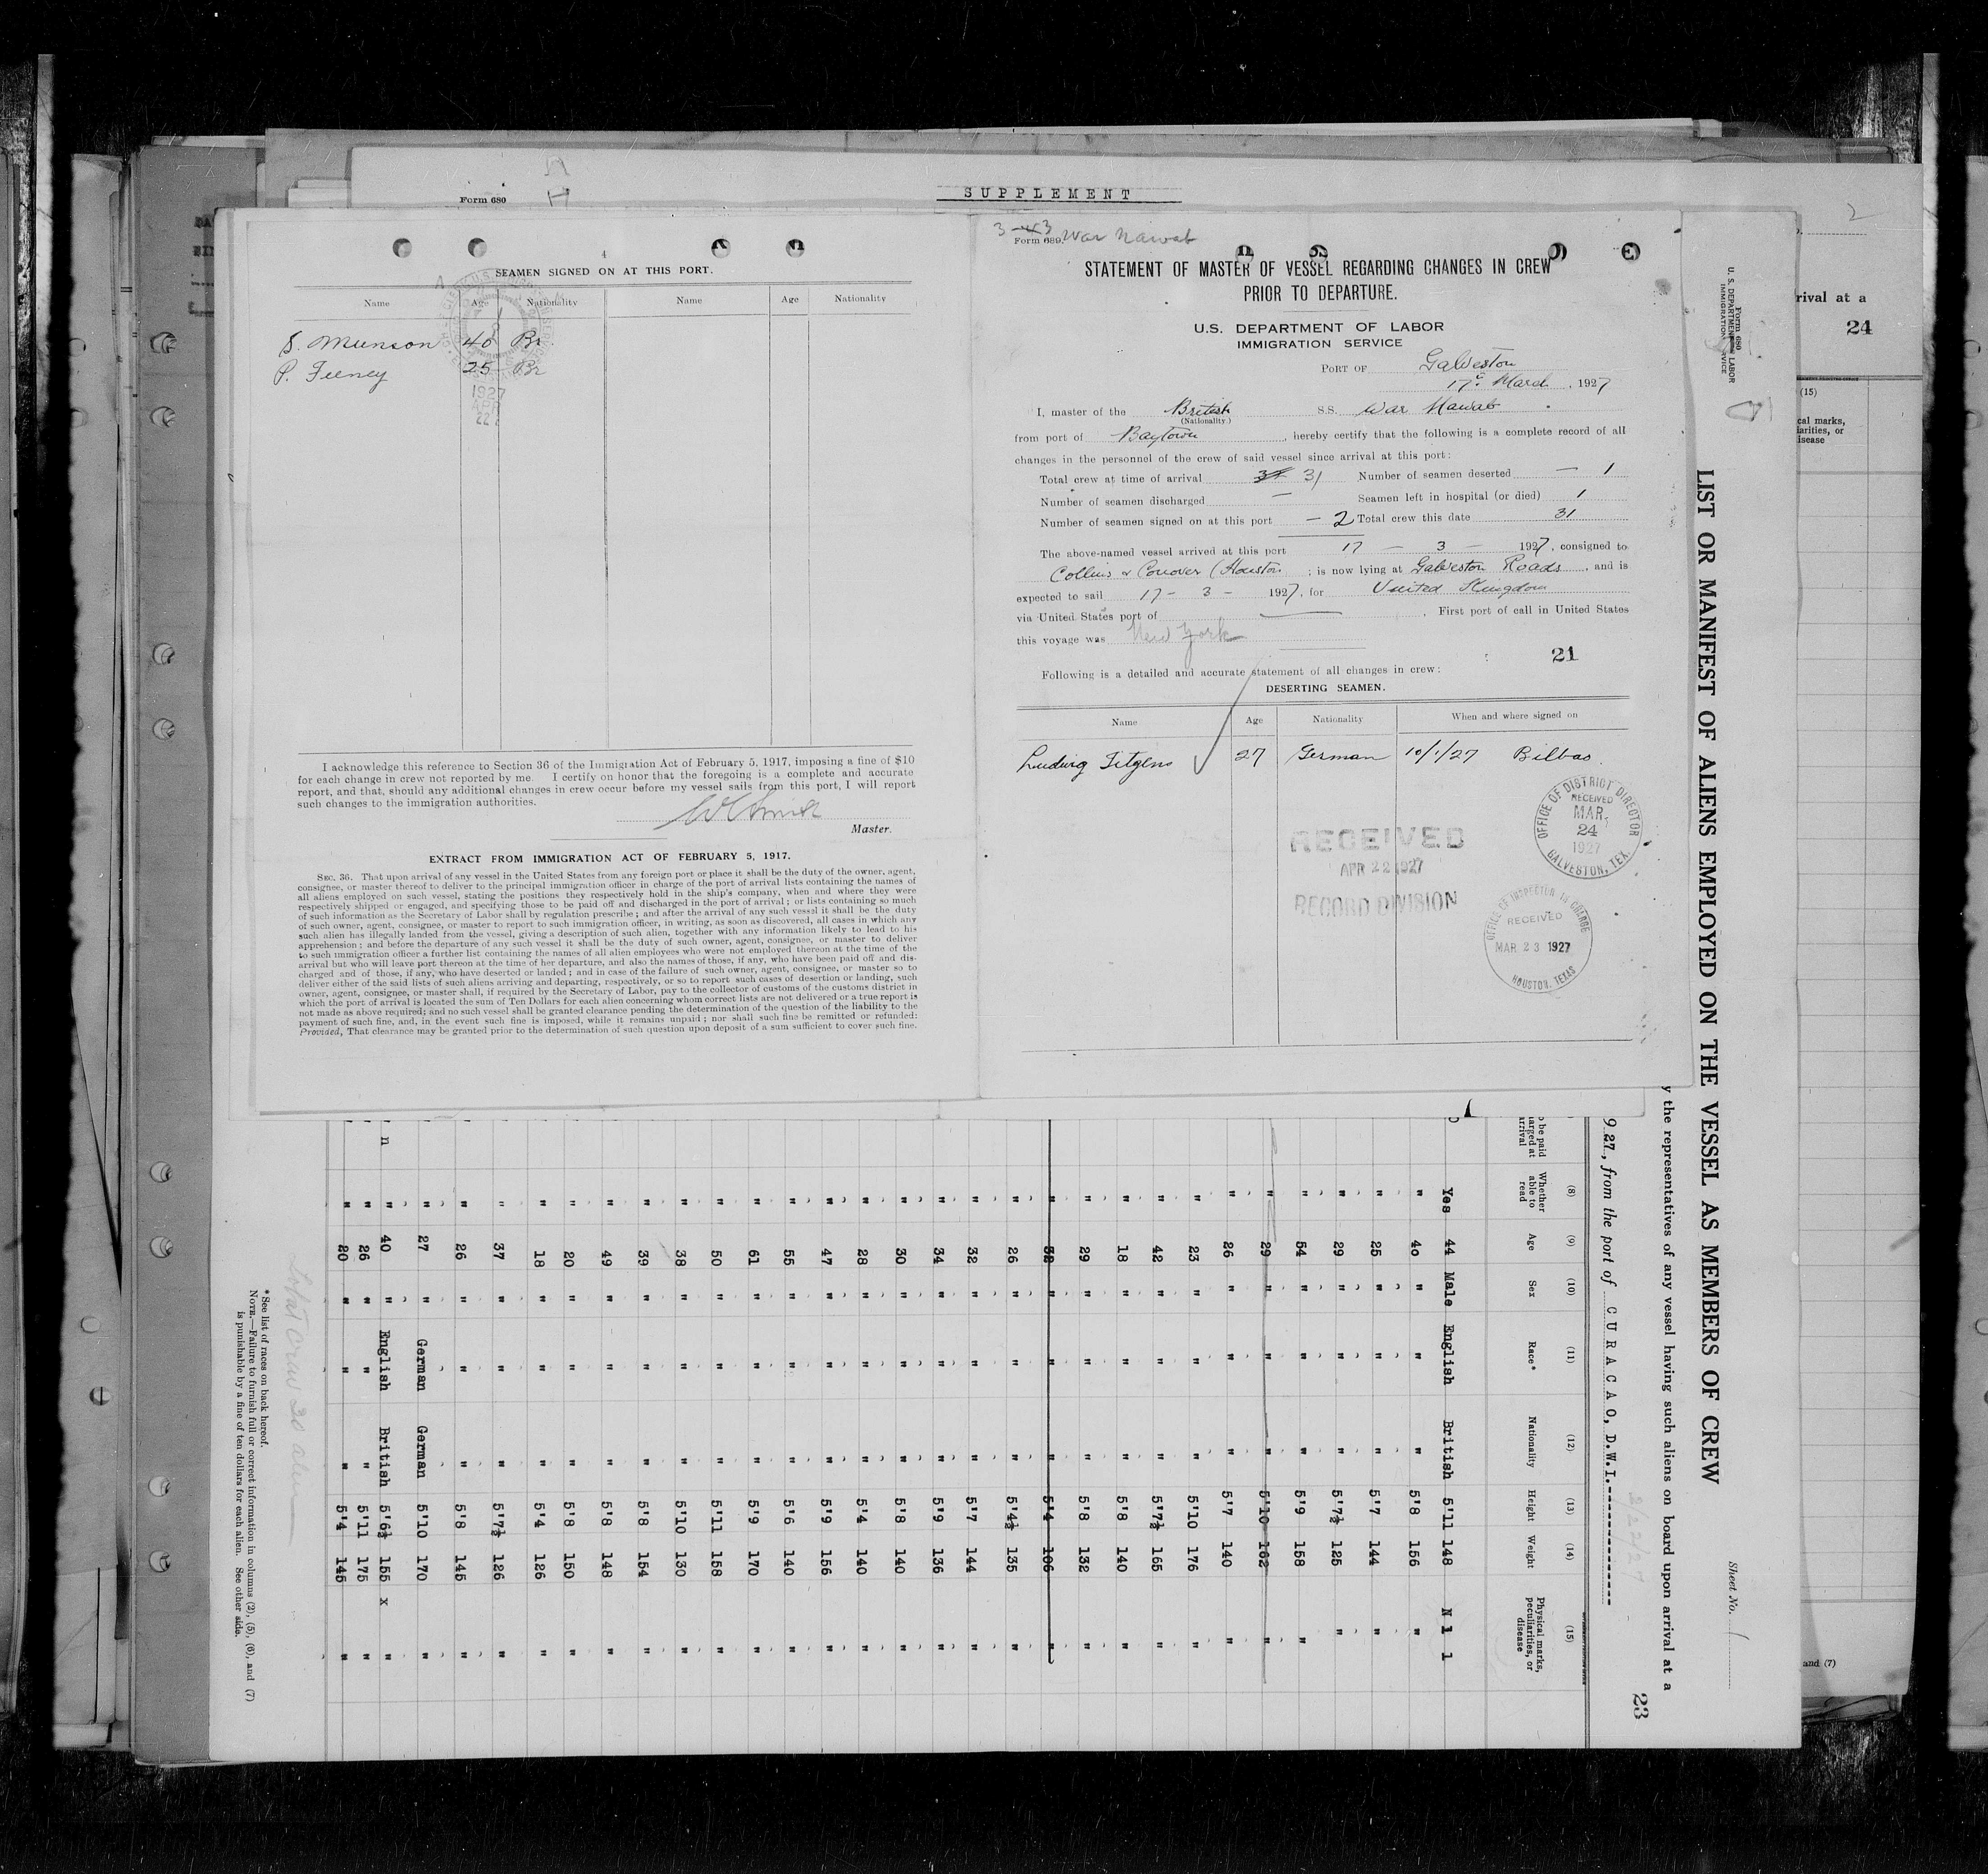 SUPPLEMENT
Form 680
2
rival at a
24
(15)
cal marks,
larities, or
isease
and (7)
4
SEAMEN SIGNED ON AT THIS PORT.
Name Age Nationality Name Age Nationality
S. Munson 40 Br
P. Feeney 25 Br
1927
APR
22
I acknowledge this reference to Section 36 of the Immigration Act of February 5, 1917, imposing a fine of $10
for each change in crew not reported by me. I certify on honor that the foregoing is a complete and accurate
report, and that, should any additional changes in crew occur before my vessel sails from this port, I will report
such changes to the immigration authorities.
Master.
EXTRACT FROM IMMIGRATION ACT OF FEBRUARY 5, 1917.
SEC. 36. That upon arrival of any vessel in the United States from any foreign port or place it shall be the duty of the owner, agent,
consignee, or master thereof to deliver to the principal immigration officer in charge of the port of arrival lists containing the names of
all aliens employed on such vessel, stating the positions they respectively hold in the ship's company, when and where they were
respectively shipped or engaged, and specifying those to be paid off and discharged in the port of arrival; or lists containing so much
of such information as the Secretary of Labor shall by regulation prescribe; and after the arrival of any such vessel it shall be the duty
of such owner, agent, consignee, or master to report to such immigration officer, in writing, as soon as discovered, all cases in which any
such alien has illegally landed from the vessel, giving a description of such alien, together with any information likely to lead to his
apprehension; and before the departure of any such vessel it shall be the duty of such owner, agent, consignee, or master to deliver
to such immigration officer a further list containing the names of all alien employees who were not employed thereon at the time of the
arrival but who will leave port thereon at the time of her departure, and also the names of those, if any, who have been paid off and dis-
charged and of those, if any, who have deserted or landed; and in case of the failure of such owner, agent, consignee, or master so to
deliver either of the said lists of such aliens arriving and departing, respectively, or so to report such cases of desertion or landing, such
owner, agent, consignee, or master shall, if required by the Secretary of Labor, pay to the collector of customs of the customs district in
which the port of arrival is located the sum of Ten Dollars for each alien concerning whom correct lists are not delivered or a true report is
not made as above required; and no such vessel shall be granted clearance pending the determination of the question of the liability to the
payment of such fine, and, in the event such fine is imposed, while it remains unpaid; nor shall such fine be remitted or refunded:
Provided, That clearance may be granted prior to the determination of such question upon deposit of a sum sufficient to cover such fine.
Form 689. War Nawab
STATEMENT OF MASTER OF VESSEL REGARDING CHANGES IN CREW
PRIOR TO DEPARTURE.
U.S. DEPARTMENT OF LABOR
IMMIGRATION SERVICE
PORT OF Galveston
17th March, 1927
I, master of the British S.S. War Nawab
(Nationality.)
from port of Baytown, hereby certify that the following is a complete record of all
changes in the personnel of the crew of said vessel since arrival at this port:
Total crew at time of arrival 31 Number of seamen deserted — 1
Number of seamen discharged — Seamen left in hospital (or died) 1
Number of seamen signed on at this port — 2 Total crew this date 31
The above-named vessel arrived at this port 17 — 3 — 1927, consigned to
Collins & Conover (Houston; is now lying at Galveston Roads, and is
expected to sail 17 - 3 - 1927, for United Kingdom
via United States port of —, First port of call in United States
this voyage was New York
21
Following is a detailed and accurate statement of all changes in crew:
DESERTING SEAMEN.
Name Age Nationality When and where signed on
Ludwig Titgens 27 German 10/1/27 Bilbao.
OFFICE OF DISTRICT DIRECTOR
RECEIVED
MAR.
24
1927
GALVESTON, TEX.
RECEIVED
APR 22 1927
RECORD DIVISION
OFFICE OF INSPECTOR IN CHARGE
RECEIVED
MAR 23 1927
HOUSTON, TEXAS
Form 680
U. S. DEPARTMENT OF LABOR
IMMIGRATION SERVICE
Sheet No. 1
LIST OR MANIFEST OF ALIENS EMPLOYED ON THE VESSEL AS MEMBERS OF CREW
y the representatives of any vessel having such aliens on board upon arrival at a
23
9 27, from the port of CURACAO, D.W.I.
(8) (9) (10) (11) (12) (13) (14) (15)
Whether able to read Age Sex Race* Nationality Height Weight Physical marks, peculiarities, or disease
Yes 44 Male English British 5'11 148 N i l
" 40 " " " 5'8 156 "
" 25 " " " 5'7 144 "
" 29 " " " 5'7½ 125 "
" 54 " " " 5'9 158 "
" 29 " " " 5'10 162 "
" 26 " " " 5'7 140 "
" 23 " " " 5'10 176 "
" 42 " " " 5'7½ 165 "
" 18 " " " 5'8 140 "
" 29 " " " 5'8 132 "
" 32 " " " 5'4 106 "
" 26 " " " 5'4½ 135 "
" 32 " " " 5'7 144 "
" 34 " " " 5'9 136 "
" 30 " " " 5'8 140 "
" 28 " " " 5'4 140 "
" 47 " " " 5'9 156 "
" 55 " " " 5'6 140 "
" 61 " " " 5'9 170 "
" 50 " " " 5'11 158 "
" 38 " " " 5'10 130 "
" 39 " " " 5'8 154 "
" 49 " " " 5'8 148 "
" 20 " " " 5'8 150 "
" 18 " " " 5'4 126 "
" 37 " " " 5'7½ 126 "
" 26 " " " 5'8 145 "
" 27 " German German 5'10 170 "
n " 40 " English British 5'6½ 155 x "
" 26 " " " 5'11 175 "
" 20 " " " 5'4 145 "
*See list of races on back hereof.
NOTE.—Failure to furnish full or correct information in columns (2), (5), (6), and (7)
is punishable by a fine of ten dollars for each alien. See other side.